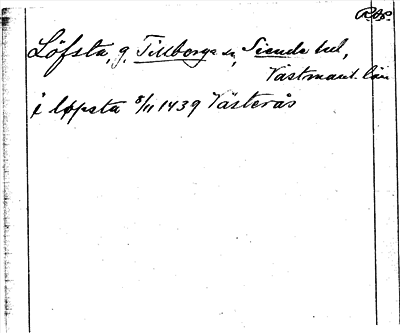 R.A.P.
Löfsta, g. Tillberga sn, Siende hd,
Västmanl. län
i løpsta 8/11 1439 Västerås